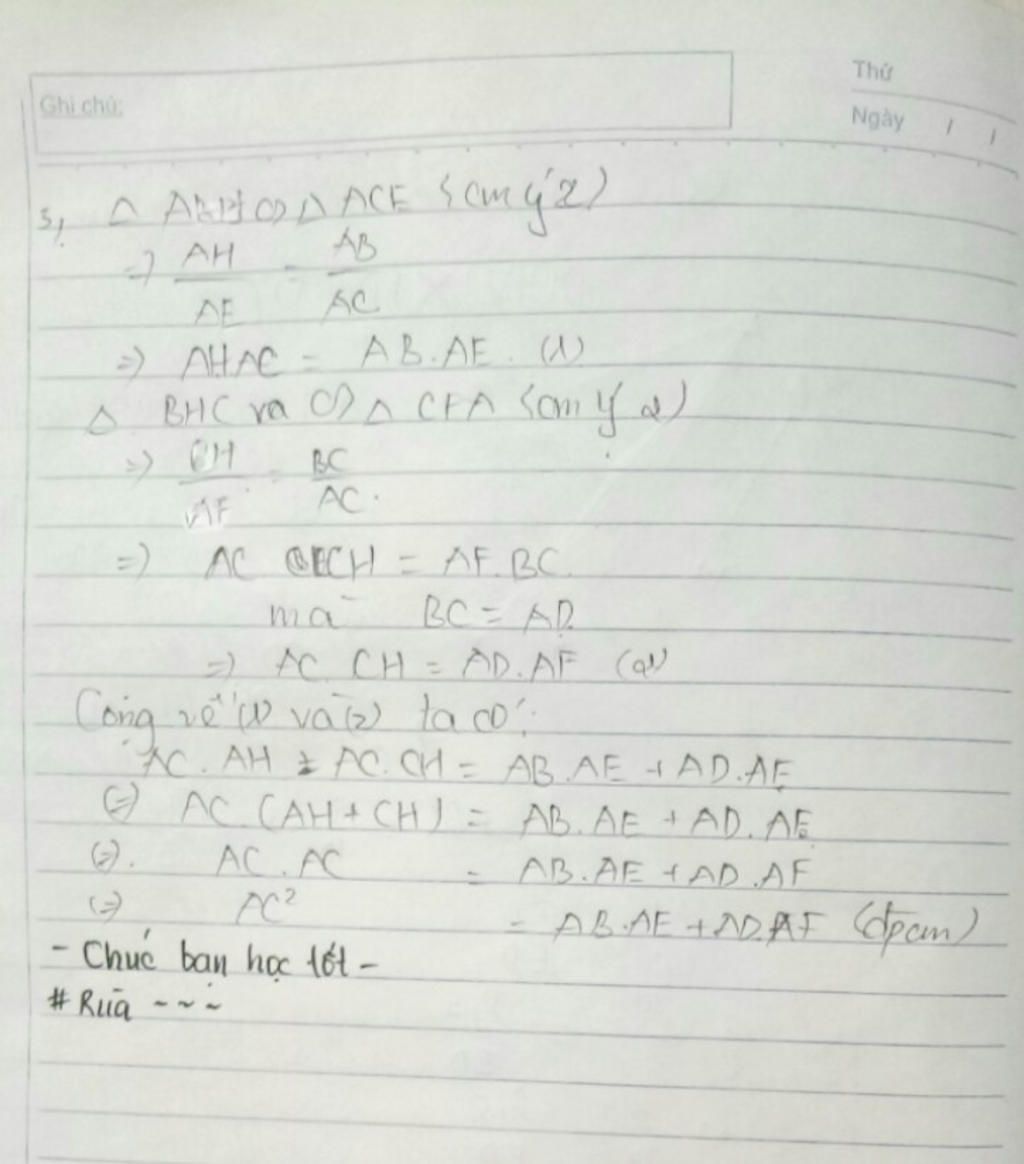 Ghi chú:
Thứ
Ngày / /
3, △ ABH ∽ △ ACE (cm ý 2)
=> AH/AE = AB/AC
=> AH.AC = AB.AE. (1)
△ BHC va ∽ △ CFA (cm ý 2)
=> CH/AF = BC/AC.
=> AC CH = AF.BC.
mà BC = AD.
=> AC.CH = AD.AF (2)
Cộng vế (1) và (2) ta có:
AC.AH + AC.CH = AB.AE + AD.AF
(=) AC.(AH + CH) = AB.AE + AD.AF
(=). AC.AC = AB.AE + AD.AF
(=) AC² = AB.AE + AD.AF (đpcm)
- Chúc bạn học tốt -
# Rùa ~ ~ ~